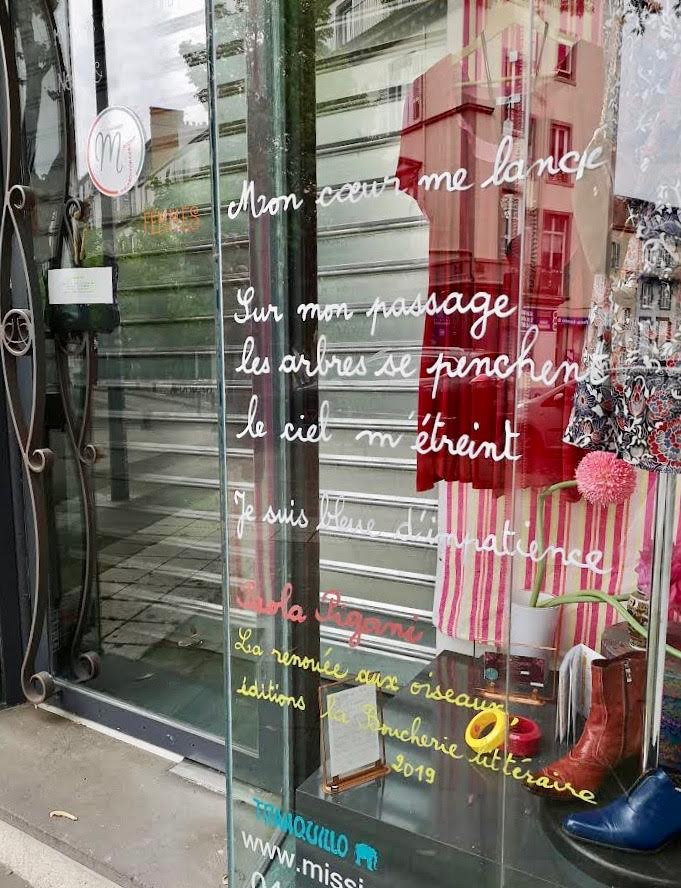 M
FEMMES
Mon cœur me lance
Sur mon passage
les arbres se penchent
le ciel m'étreint
Je suis bleue d'impatience
Paola Pigani
La renouée aux oiseaux,
éditions la Boucherie littéraire
2019
TRANQUILLO
www.missi